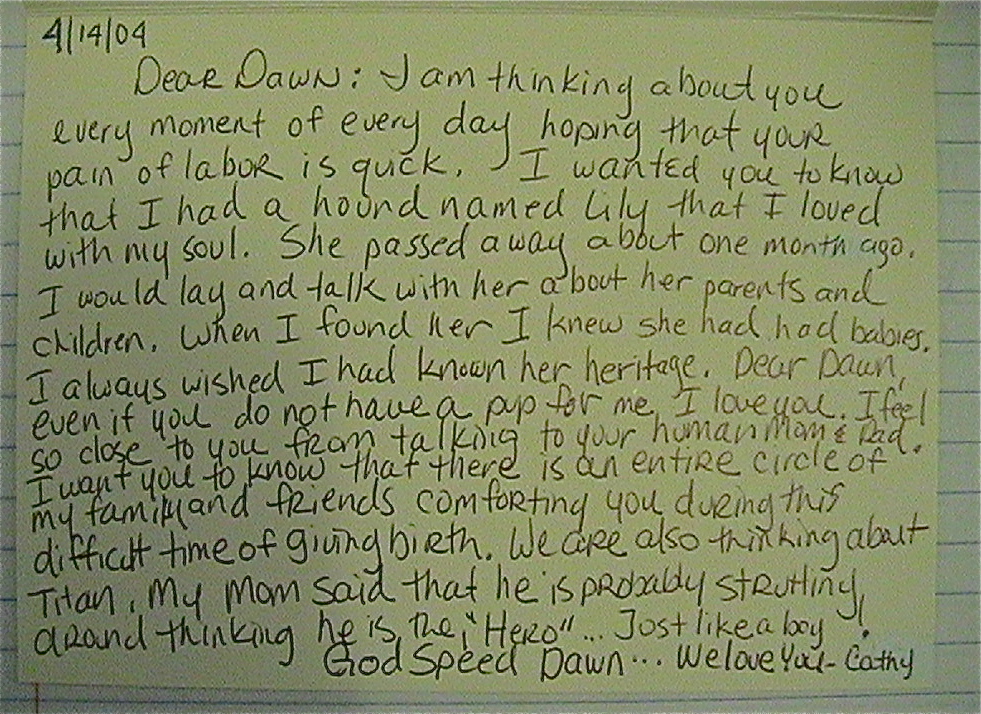 4/14/04
Dear Dawn: I am thinking about you
every moment of every day hoping that your
pain of labor is quick. I wanted you to know
that I had a hound named Lily that I loved
with my soul. She passed away about one month ago.
I would lay and talk with her about her parents and
children. When I found her I knew she had had babies.
I always wished I had known her heritage. Dear Dawn,
even if you do not have a pup for me, I love you. I feel
so close to you from talking to your human Mom & Dad.
I want you to know that there is an entire circle of
my family and friends comforting you during this
difficlt time of giving birth. We are also thinking about
Titan. My Mom said that he is probably strutting
around thinking he is the "Hero"... Just like a boy!
God Speed Dawn... We love You - Cathy